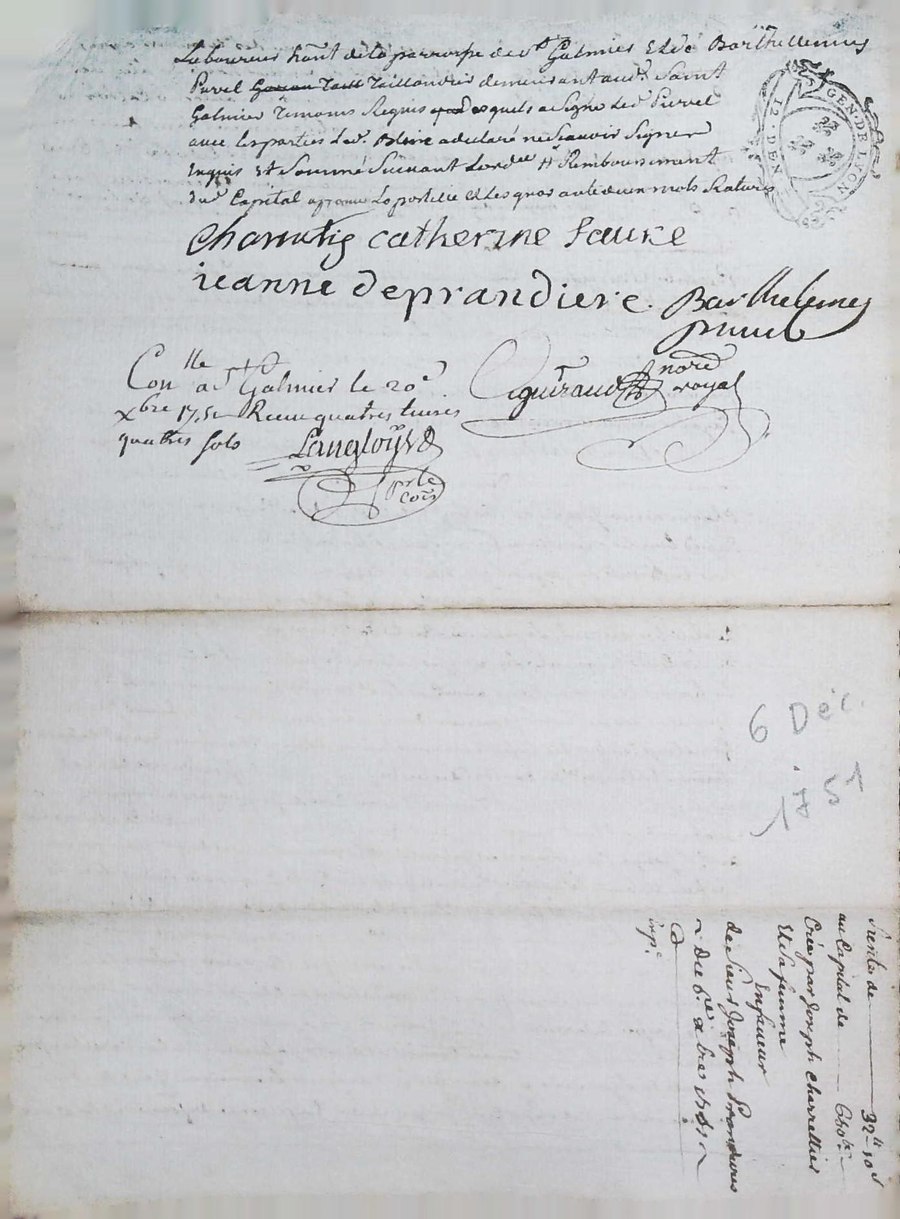 Laboureur hant de la parroisse de st Galmier Et de Barthellemy
Purel taillandier demeurant audt Saint
Galmier Temoins Requis Lesquels a Signé led Purel
avec les parties led. Blein a declaré ne Scavoir Signer
Enquis Et Sommé Suivant Lord ce Remboursement
du Capital approuvé et les quatre mots Raturés
GEN. DE LYON
12 DEN
catherine faure
ieanne deprandiere. Barthelemy
purel
Con lle a st Galmier le 20e
xbre 175 Receu quatres livres
quatres sols
Langloys
Aguiraud nore
royal
6 Déc.
1751
Rentes de 32 lt 10 s
au Capital de 650 lt
Créé par Joseph Charrellier
Et sa femme
En faveur
de sieur Joseph
du 6e Xbre 1751